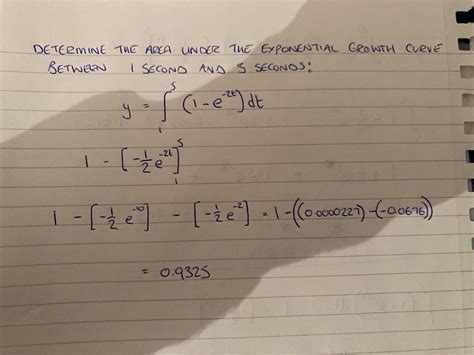 DETERMINE THE AREA UNDER THE EXPONENTIAL GROWTH CURVE
BETWEEN 1 SECOND AND 5 SECONDS:
y = ∫₁⁵ (1 - e^(-2t)) dt
1 - [-1/2 e^(-2t)]₁⁵
1 - [-1/2 e^(-10)] - [-1/2 e^(-2)] = 1 - ((0.0000227) - (-0.0676))
= 0.9325